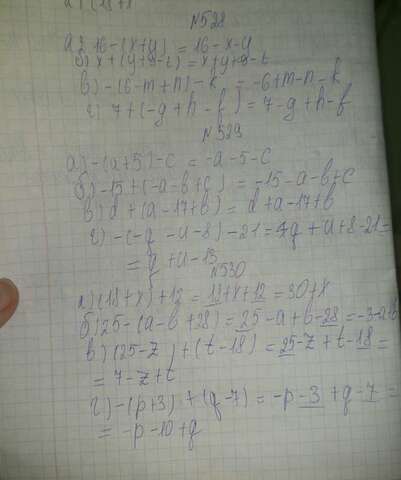 а) (18+
№528
а) 16-(x+y) = 16-x-y
б) x+(y+8-t) = x+y+8-t
в) -(6-m+n)-k = -6+m-n-k
г) 7+(-g+h-f) = 7-g+h-f
№529
а) -(a+5)-c = -a-5-c
б) -15+(-a-b+c) = -15-a-b+c
в) d+(a-17+b) = d+a-17+b
г) -(-q-u-8)-21 = q+u+8-21=
= q+u-13
№530
а) (18+x)+12 = 18+x+12 = 30+x
б) 25-(a-b+28) = 25-a+b-28 = -3-a+b
в) (25-z)+(t-18) = 25-z+t-18 =
= 7-z+t
г) -(p+3)+(q-7) = -p-3+q-7 =
= -p-10+q